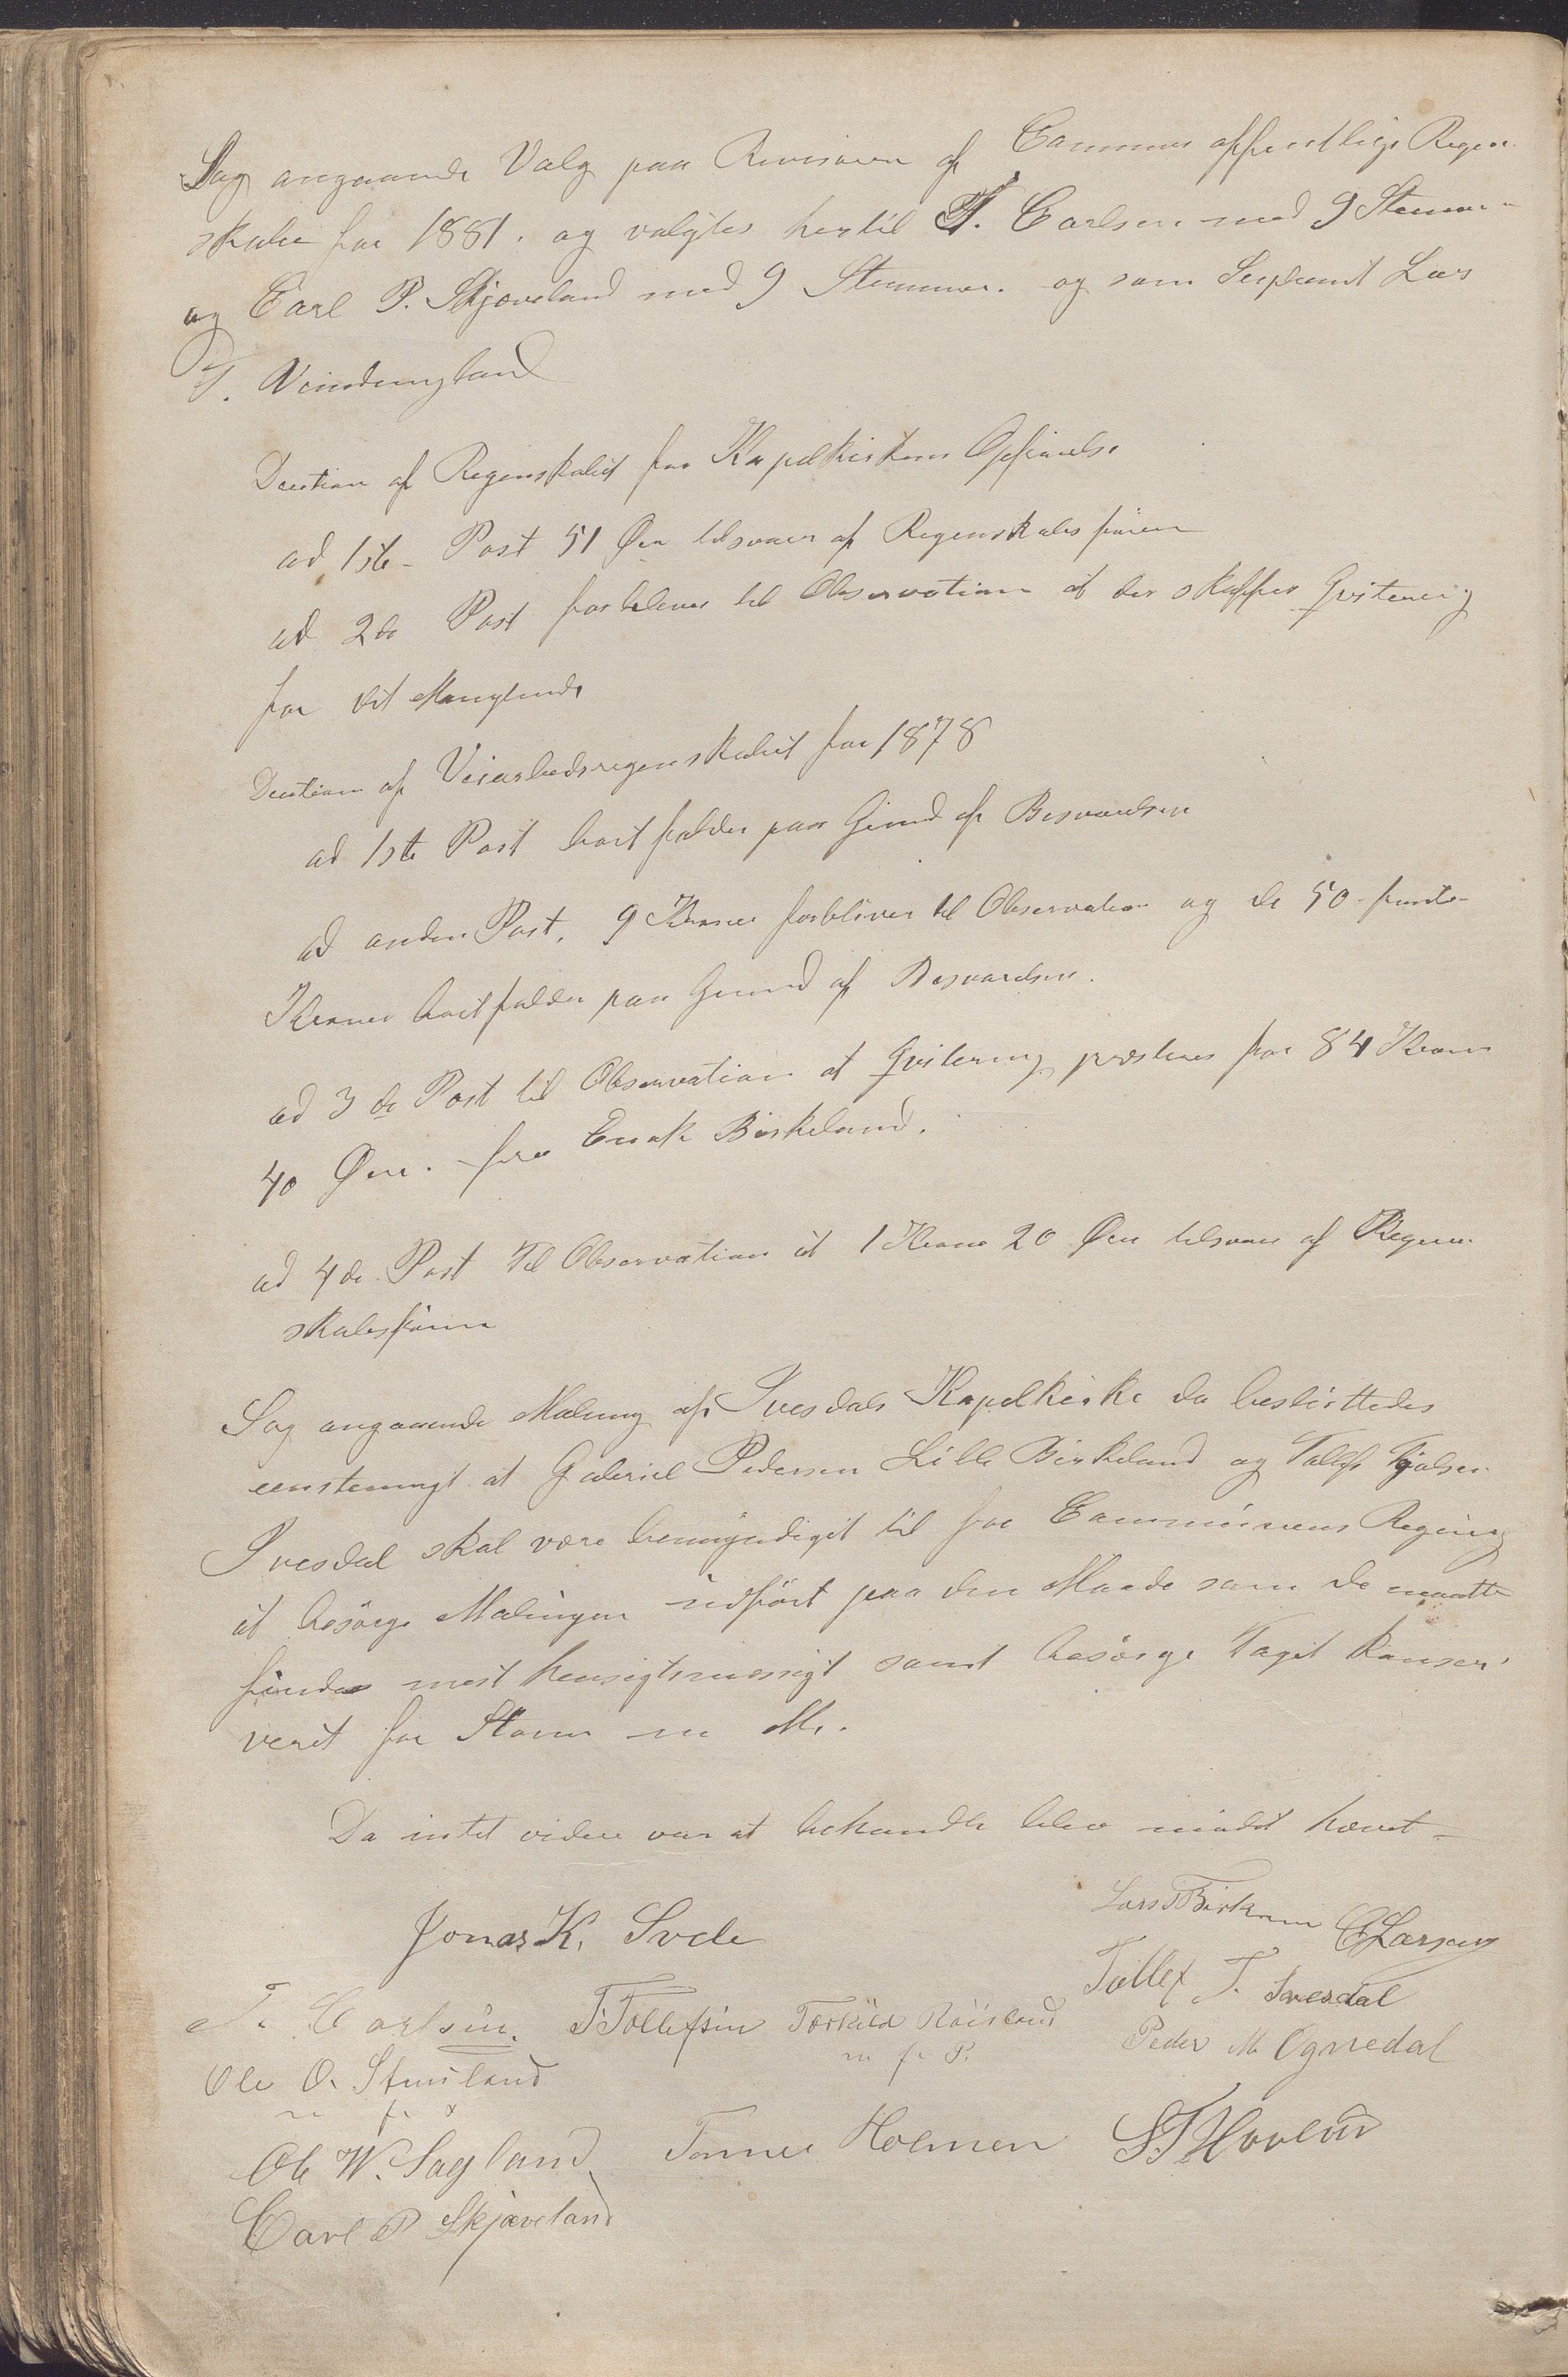 Sag angaaende Valg paa Revisorer af Communes offentlige Regen-
skaber for 1881. og valgtes hertil T. Carlsen med 9 Stemmer
og Carl P. Skjæveland med 9 Stemmer. og som Supleant Lars
T.
Decition af Regenskabet for Kapelkirkens Opførelse
ad 1ste Post 51 Øre tilsvares af Regenskabsføreren
ad 2de Post forbliver til Observation at der skaffes Qvitering
for det Manglende
Decition af Veiarbeidsregenskabet for 1878
ad 1ste Post bortfalder paa Grund af Besvarelsen
ad anden Post, 9 Kroner forbliver til Observation og de 50
Kroner bortfalder paa Grund af Besvarelsen.
ad 3de Post til Observation at Qvitering præsteres for 84 Kroner
40 Øre. fra Enok Birkeland.
ad 4de Post til Observation at 1 Krone 20 Øre tilsvares af Regen-
skabsføreren
Sag angaaende Maling af Ivesdals Kapelkirke da besluttedes
eenstemmigt at Gabriel Pedersen Lille Birkeland og Tollef
Ivesdal skal være bemyndiget til for Communens Regning
at besørge Malingen udført paa den Maade som de maatte
finde mest hensigtsmæssigt samt besørge Taget konser-
veret for Storm m M.
Da intet videre var at behandle blev mødet hævet
Jonas K. Svele
Lars Birkrem
C Larsen
Tollef T. Ivesdal
T. Carlsen. T Tollefsen Torkild Røisland
m f P.
Peder M Ognedal
Ole O. Stensland
m f
Ole W. Sagland Tønnes Holmen S T Hovland
Carl P Skjæveland